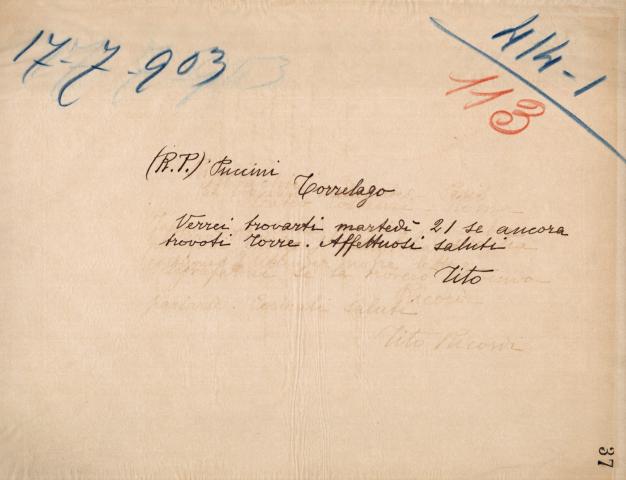 17-7-903
414-1
113
(R.P.) Puccini
Torrelago
Verrei trovarti martedì 21 se ancora
trovoti Torre. Affettuosi saluti
Tito
saluti
Tito Ricordi
37